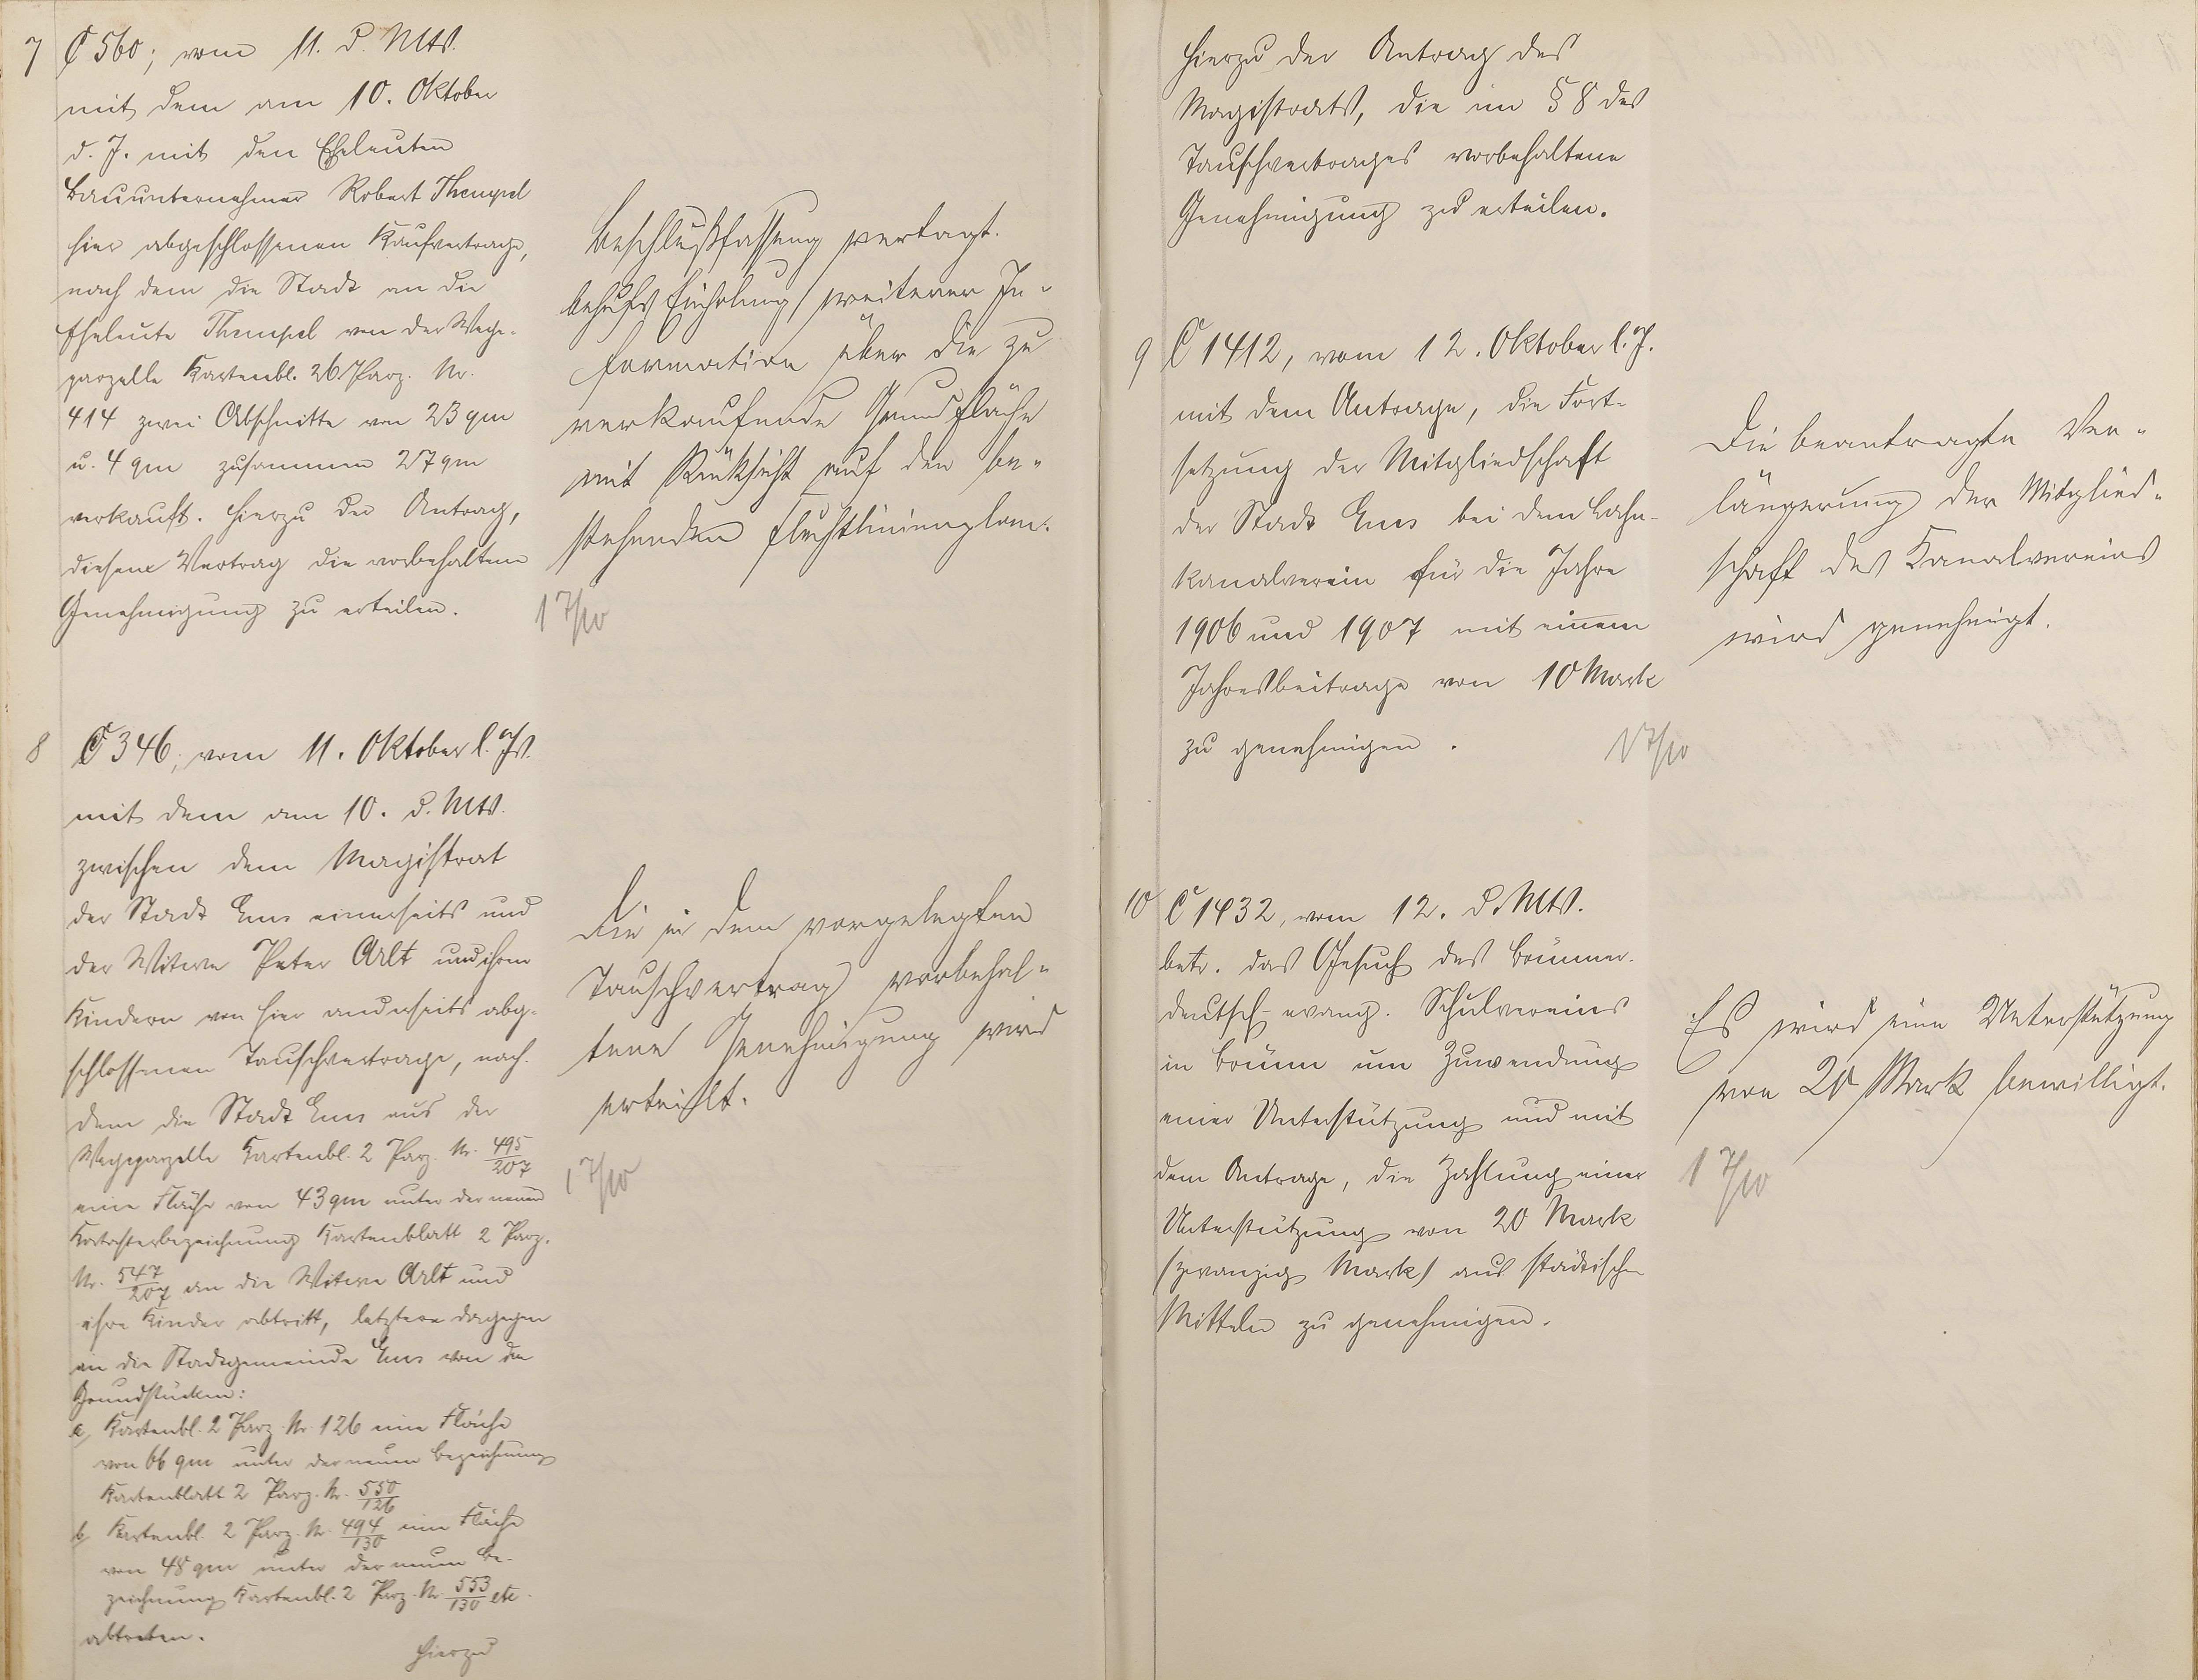 7 C 560; vom 11. d. Mts.
mit dem am 10. Oktober
d. J. mit den Eheleuten
Bauunternehmer Robert Thempel
hier abgeschlossenen Kaufvertrage,
nach dem die Stadt an die
Eheleute Thempel von der Wege-
parzelle Kartenbl. 26 Parz. Nr.
414 zwei Abschnitte von 23 qm
u. 4 qm zusammen 27 qm
verkauft. Hierzu der Antrag,
diesem Vertrag die vorbehaltene
Genehmigung zu erteilen.
Beschlußfassung vertagt.
behufs Einholung weiterer In-
formation über die zu
verkaufende Grundfläche
mit Rücksicht auf den be-
stehenden Fluchtlinienplan.
17/10
8 C 346, vom 11. Oktober l. Js.
mit dem am 10. d. Mts.
zwischen dem Magistrat
der Stadt Ems einerseits und
der Witwe Peter Arlt und ihren
Kindern von hier anderseits abge-
schlossenen Tauschvertrage, nach
dem die Stadt Ems aus der
Wegeparzelle Kartenbl. 2 Parz. Nr. 495/207
eine Fläche von 43 qm unter der neuen
Katasterbezeichnung Kartenblatt 2 Parz.
Nr. 547/207 an die Witwe Arlt und
ihre Kinder abtritt, letztere dagegen
an die Stadtgemeinde Ems von den
Grundstücken:
a, Kartenbl. 2 Parz. Nr. 126 eine Fläche
von 66 qm unter der neuen Bezeichnung
Kartenblatt 2 Parz. Nr. 550/126
b, Kartenbl. 2 Parz. Nr. 494/130 eine Fläche
von 48 qm unter der neuen Be-
zeichnung Kartenbl. 2 Parz. Nr. 553/130 etc.
abtreten.
Hierzu
Die in dem vorgelegten
Tauschvertrag vorbehal-
tene Genehmigung wird
erteilt.
17/10
Hierzu der Antrag des
Magistrats, die im § 8 des
Tauschvertrages vorbehaltene
Genehmigung zu erteilen.
9 C 1412, vom 12. Oktober l. J.
mit dem Antrage, die Fort-
setzung der Mitgliedschaft
der Stadt Ems bei dem Lahn-
kanalverein für die Jahre
1906 und 1907 mit einem
Jahresbeitrage von 10 Mark
zu genehmigen.
17/10
Die beantragte Ver-
längerung der Mitglied-
schaft des Kanalvereins
wird genehmigt.
10 C 1432, vom 12. d. Mts.
betr. das Gesuch des Brünner-
deutsch-evang. Schulvereins
in Brünn um Zuwendung
einer Unterstützung und mit
dem Antrage, die Zahlung einer
Unterstützung von 20 Mark
(zwanzig Mark) aus städtischen
Mitteln zu genehmigen.
Es wird eine Unterstützung
von 20 Mark bewilligt.
17/10